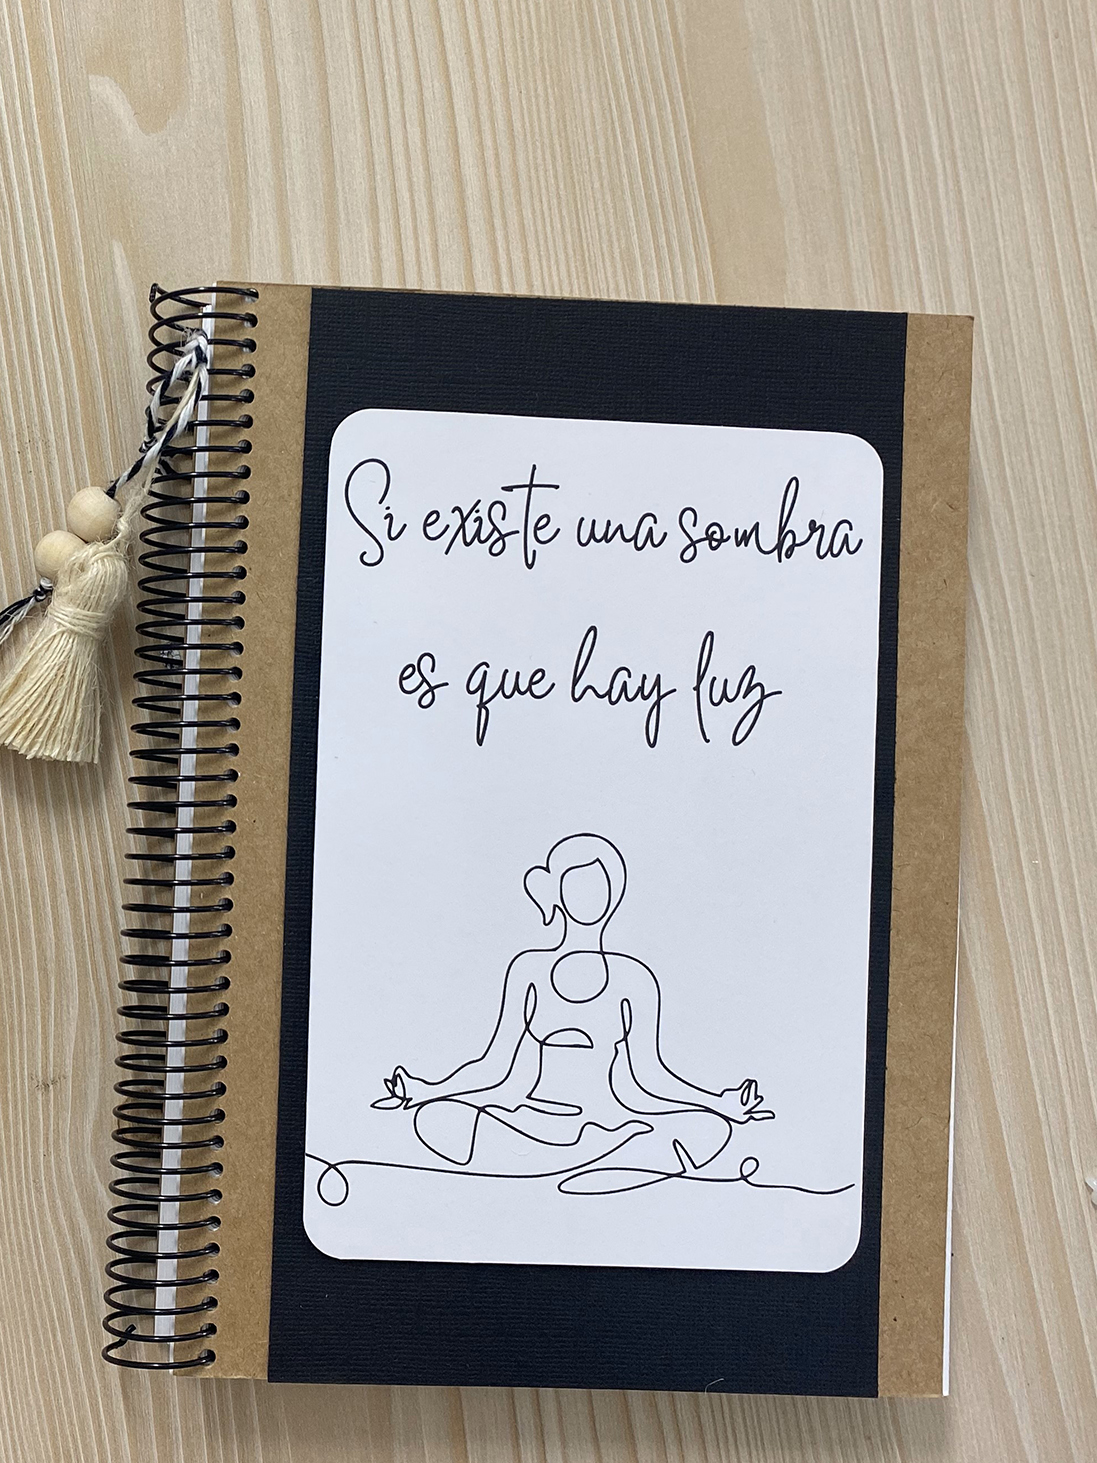 Si existe una sombra
es que hay luz